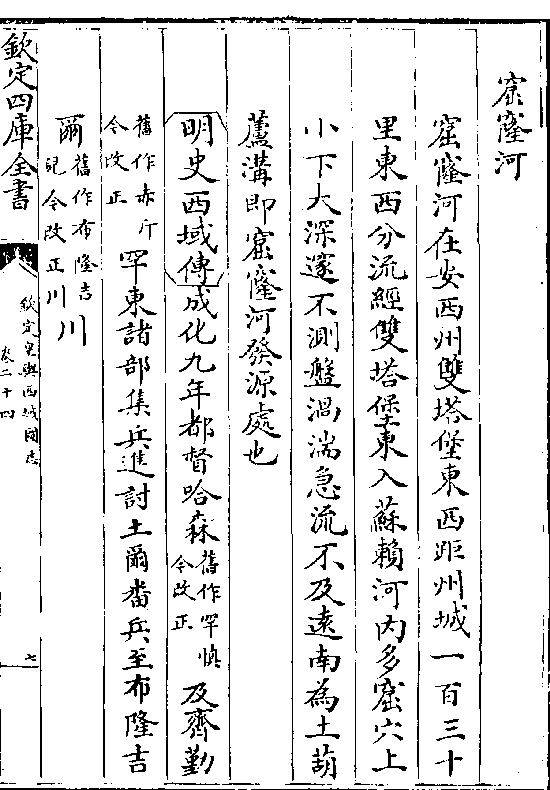 窟窿河
窟窿河在安西州雙塔堡東西距州城一百三十
里東西分流經雙塔堡東入蘇賴河内多窟穴上
小下大深邃不測盤渦湍急流不及遠南為土葫
蘆溝即窟窿河發源處也
明史西域傳成化九年都督哈森舊作罕慎今改正及齊勤
舊作赤斤今改正罕東諸部集兵進討土爾番兵至布隆吉
爾舊作布隆吉兒今改正川川
欽定四庫全書
欽定皇輿西域圖志
卷二十四
七